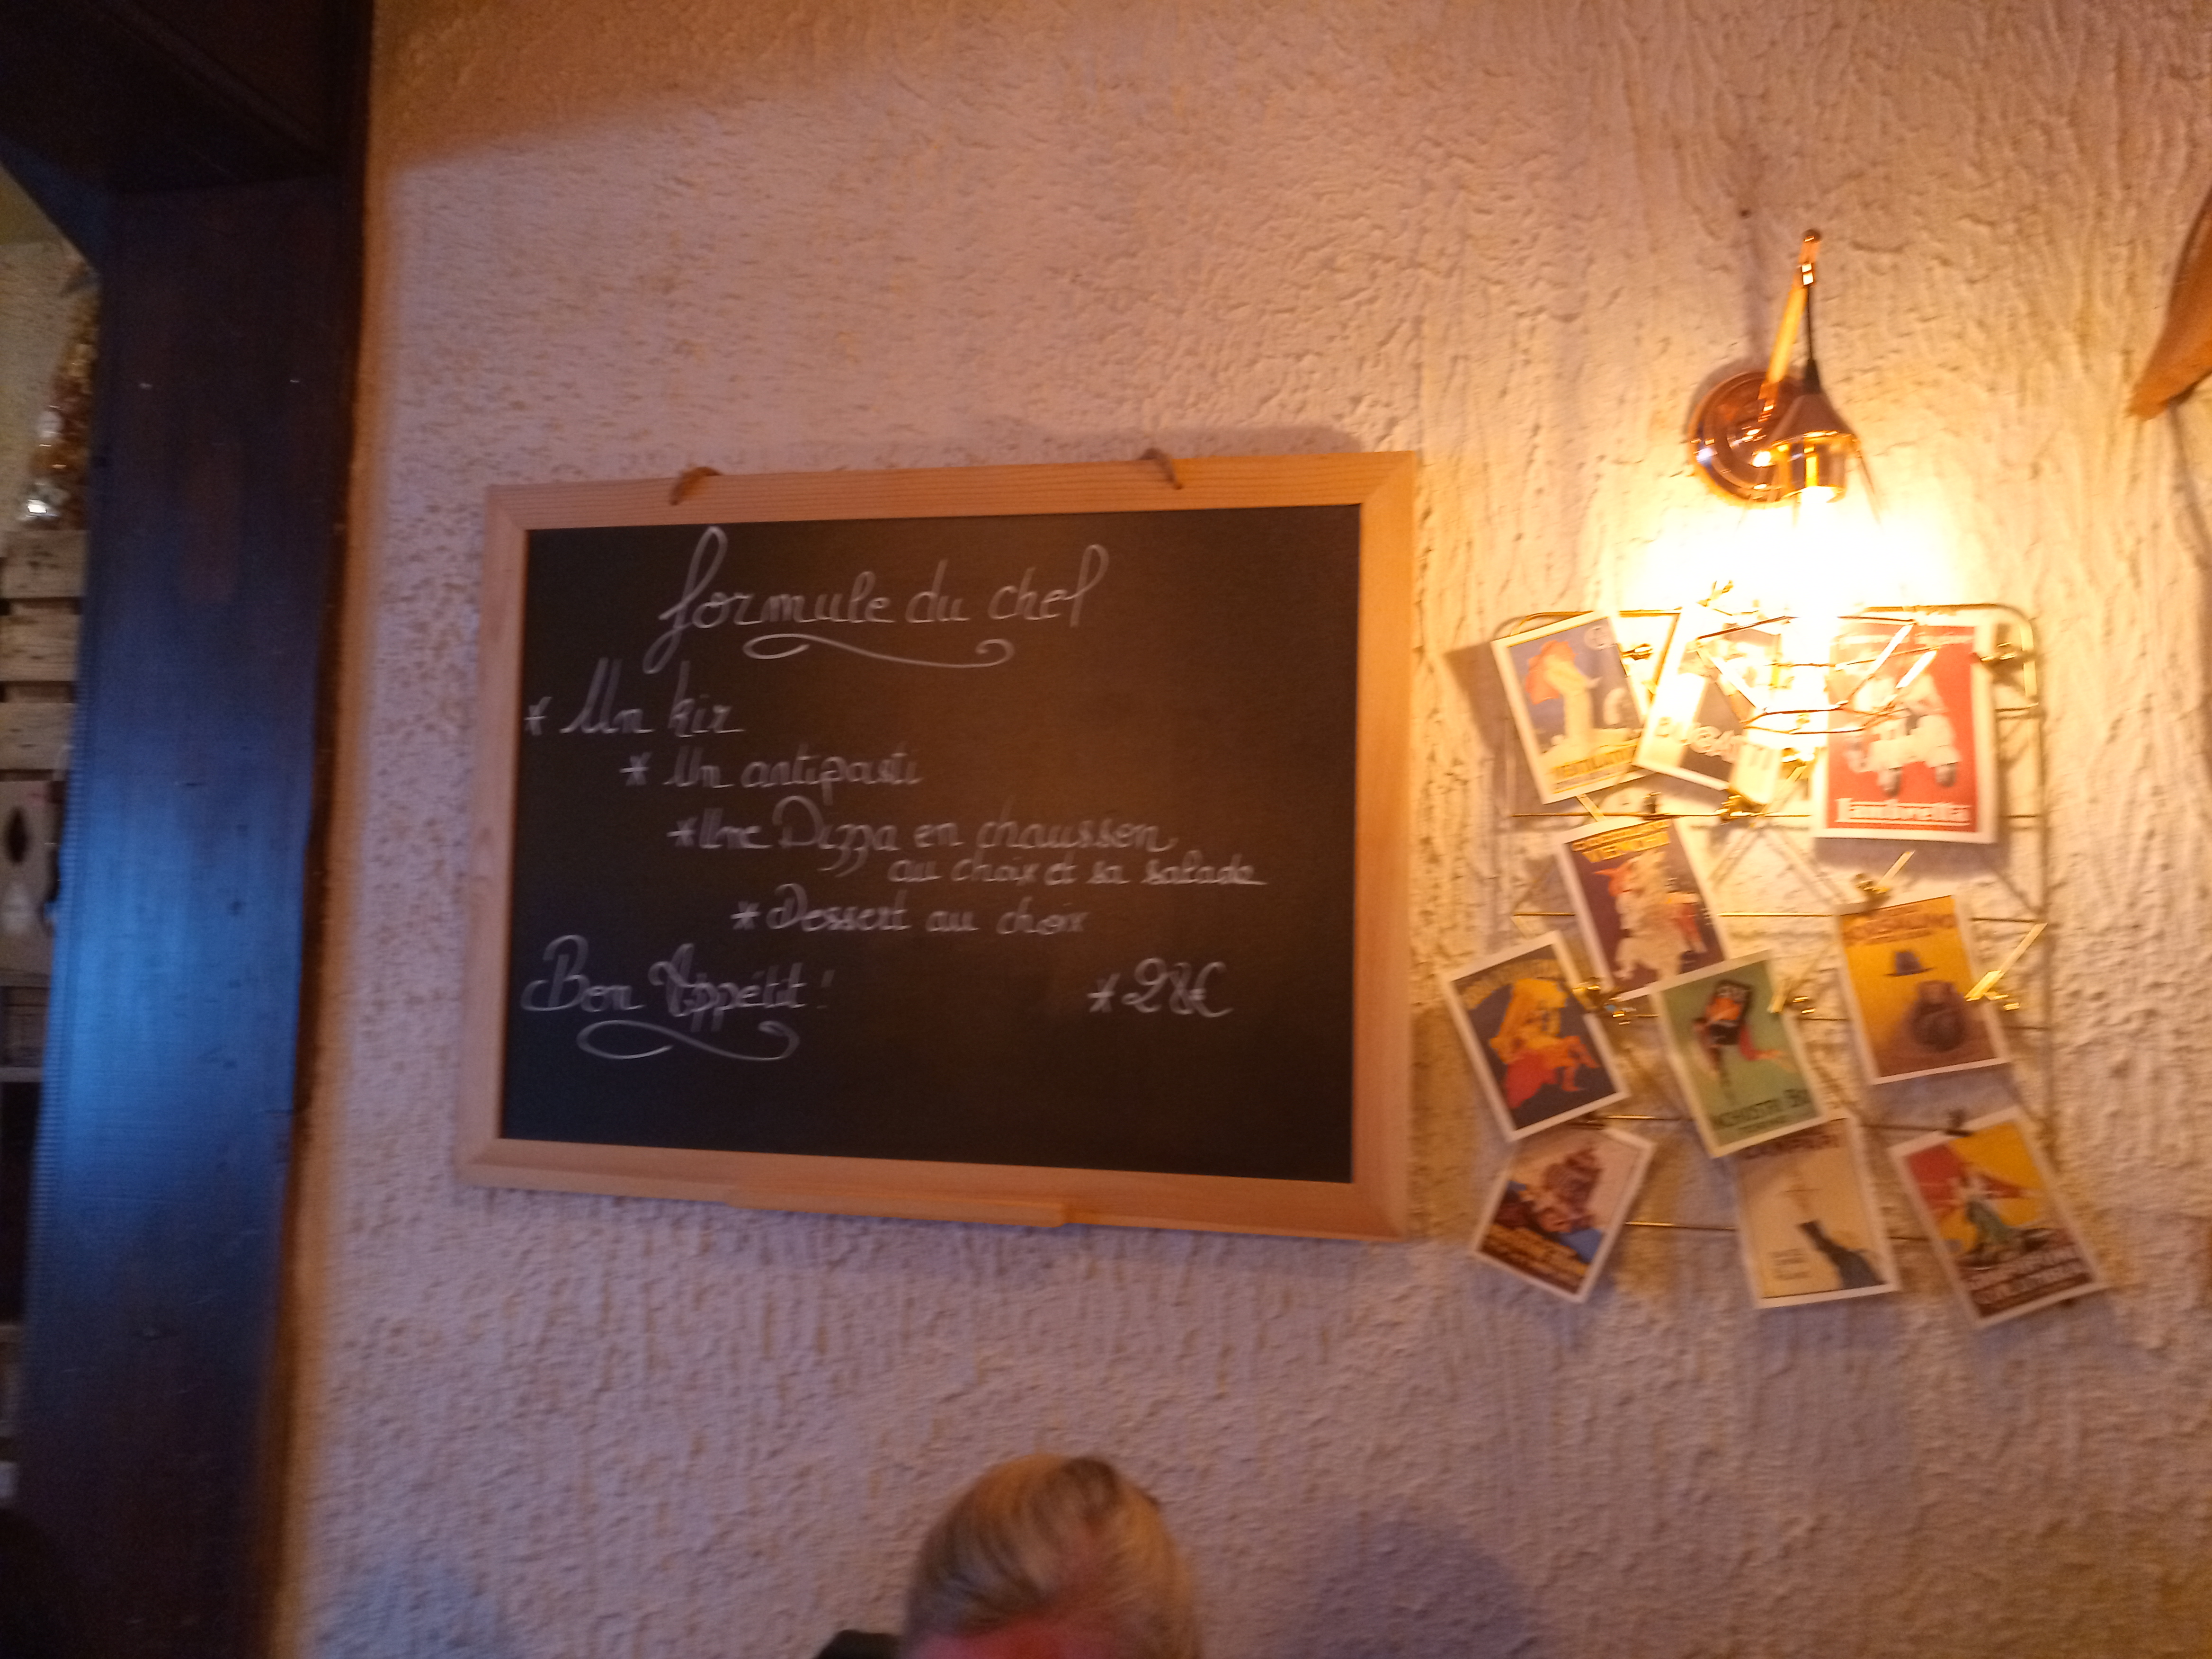 formule du chef
* Un kir
* Un antipasti
* Une Pizza en chausson
au choix et sa salade
* Dessert au choix
Bon Appétit !
* 28€
Lambretta